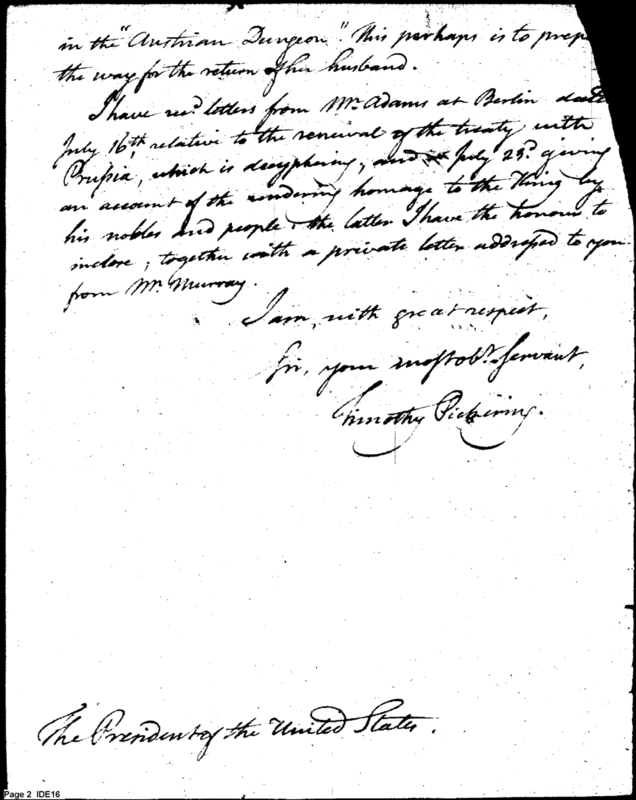 in the "Austrian Dungeon". This perhaps is to prep
the way for the return of her husband.
I have rec.d letters from Mr. Adams at Berlin date
July 16th, relative to the renewal of the treaty with
Prussia, which is decyphering; and July 23d. giving
an account of the rendering homage to the King by
his nobles and people: the latter I have the honour to
inclose; together with a private letter addressed to you
from Mr. Murray.
I am, with great respect,
Sir, your most ob.t servant,
Timothy Pickering.
The President of the United States.
Page 2 IDE16